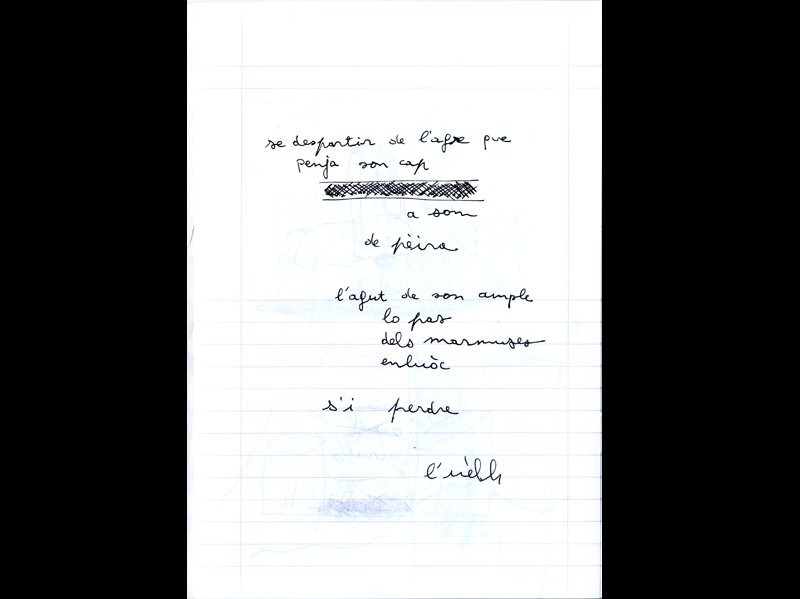 se despartir de l'agre que
penja son cap
a som
de pèira
l'agut de son ample
lo pas
dels marmuses
enluòc
s'i perdre
l'uèlh